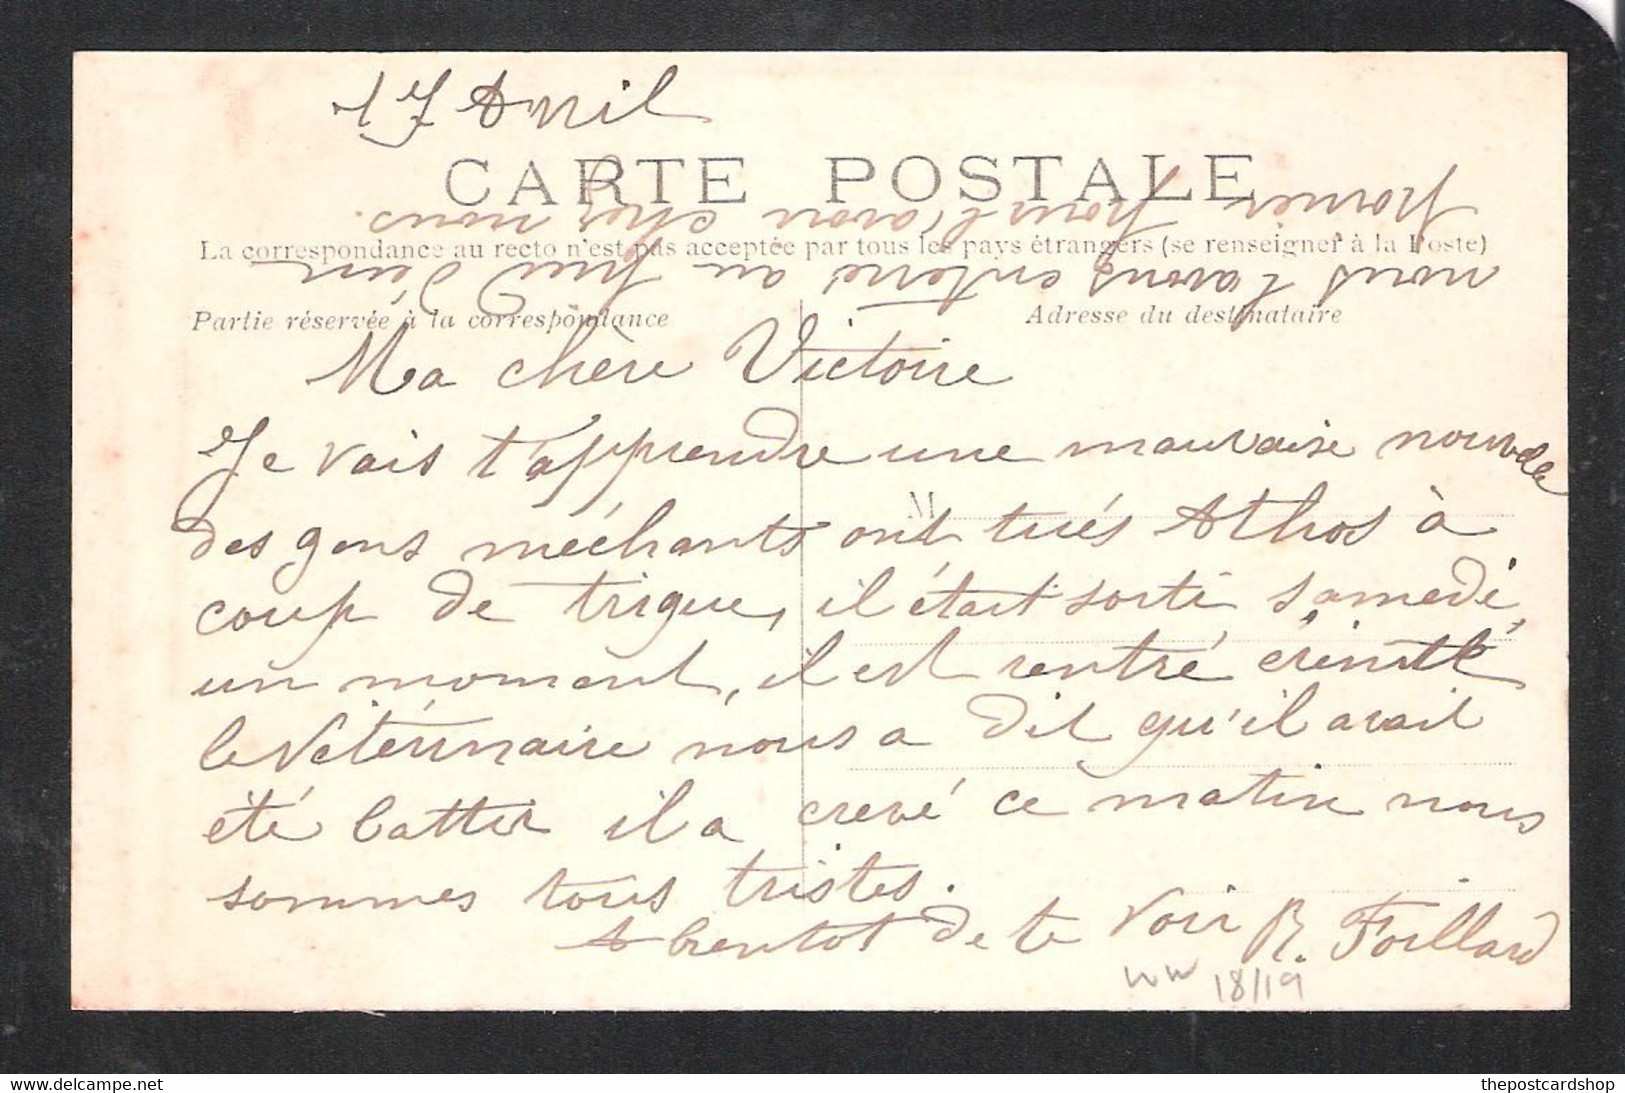 17 Avril
CARTE POSTALE
La correspondance au recto n'est pas acceptée par tous les pays étrangers (se renseigner à la Poste)
Partie réservée à la correspondance
Adresse du destinataire
Ma chère Victoire
Je vais t'apprendre une mauvaise nouvelle
M
des gens méchants ont tués Athos à
coup de trique, il était sorti samedi,
un moment, il est rentré
le Vétérinaire nous a dit qu'il avait
été battu il a crevé ce matin nous
sommes tous tristes.
A bientot de te voir R. Foillard
nous l'avons enterré au pied d'un
pomier pour l'avoir cher nous.
WW 18/19
delcampe.net
thepostcardshop